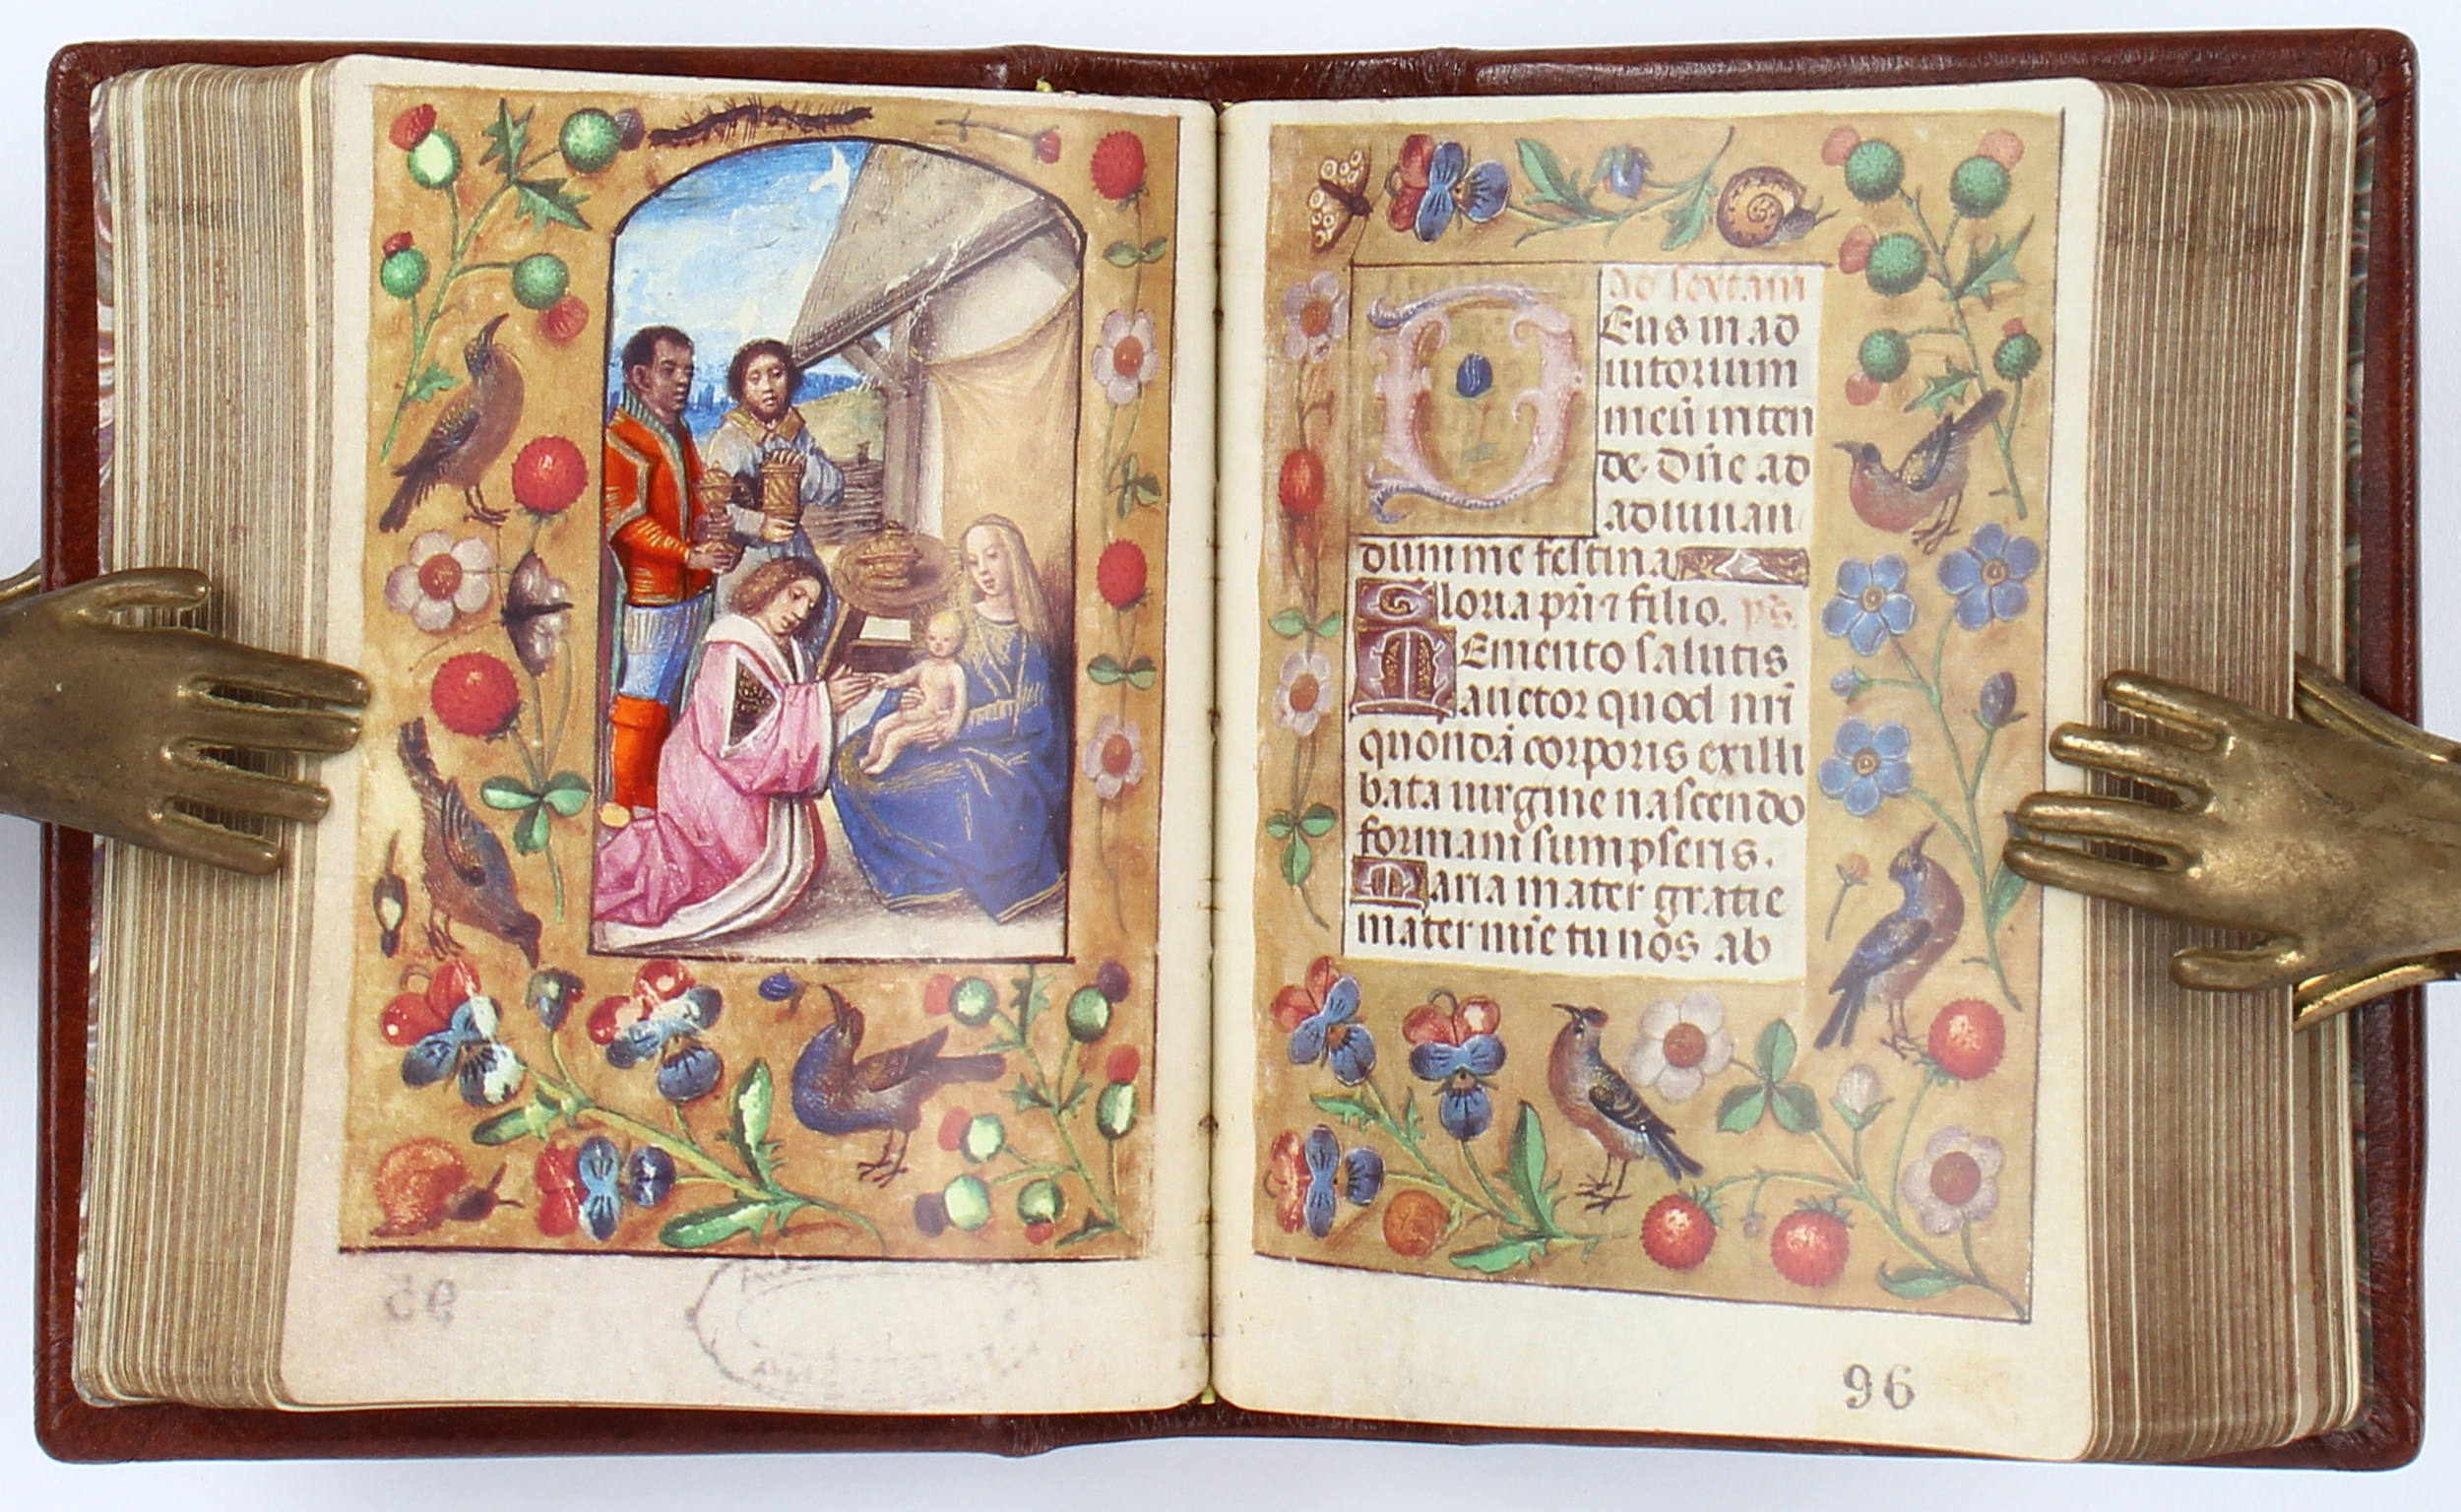 ad sextam
Deus in ad
iutorium
meū inten
de. Dn̄e ad
adiuuan
dum me festina
Gloria pr̄i ⁊ filio. ps̄.
Memento salutis
auctor quod nr̄i
quondā corporis ex illi
bata uirgine nascendo
formam sumpseris.
Maria mater gratie
mater mīe tu nos ab
95
96